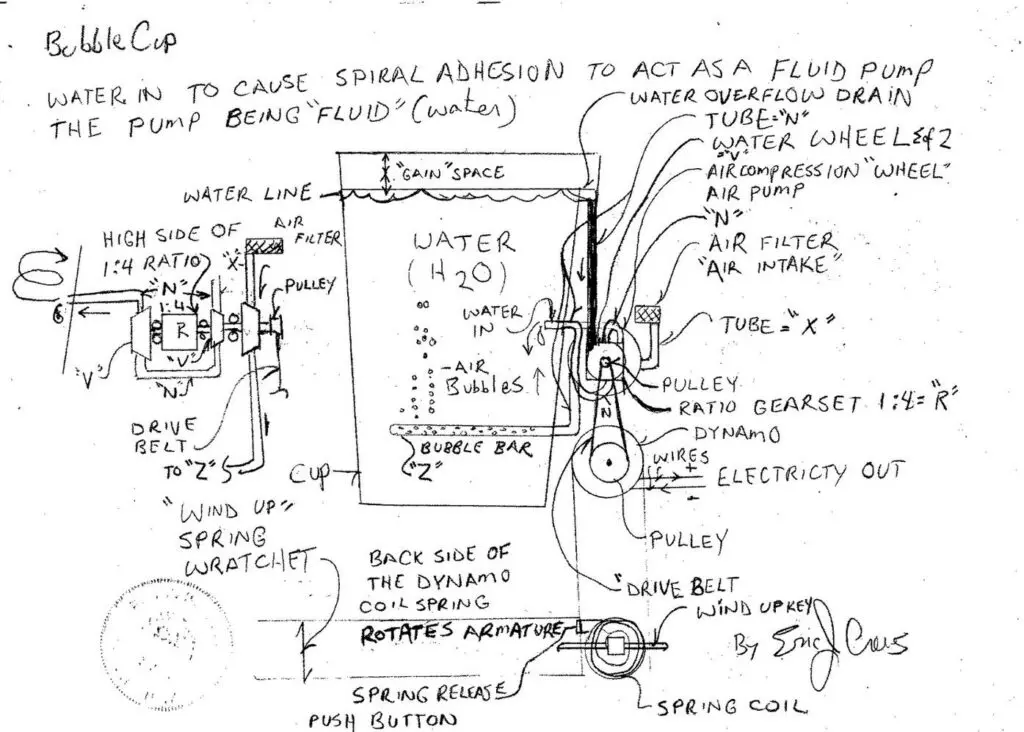 Bubble Cup
WATER IN TO CAUSE SPIRAL ADHESION TO ACT AS A FLUID PUMP
THE PUMP BEING "FLUID" (water)
WATER OVERFLOW DRAIN
TUBE="N"
WATER WHEEL &of 2
="V"
AIR COMPRESSION "WHEEL"
AIR PUMP
"N"
AIR FILTER
"AIR INTAKE"
TUBE="X"
"GAIN" SPACE
WATER LINE
WATER
(H2O)
WATER
IN
AIR
BUBBLES
BUBBLE BAR
"Z"
CUP
HIGH SIDE OF
1:4 RATIO
AIR
FILTER
"X"
PULLEY
"N"
1:4
R
"V"
"V"
"N"
DRIVE
BELT
TO "Z"
PULLEY
RATIO GEARSET 1:4="R"
N
DYNAMO
WIRES
+
-
ELECTRICTY OUT
PULLEY
"DRIVE BELT
"WIND UP"
SPRING
WRATCHET
BACK SIDE OF
THE DYNAMO
COIL SPRING
ROTATES ARMATURE
WIND UP KEY
SPRING RELEASE
PUSH BUTTON
SPRING COIL
By